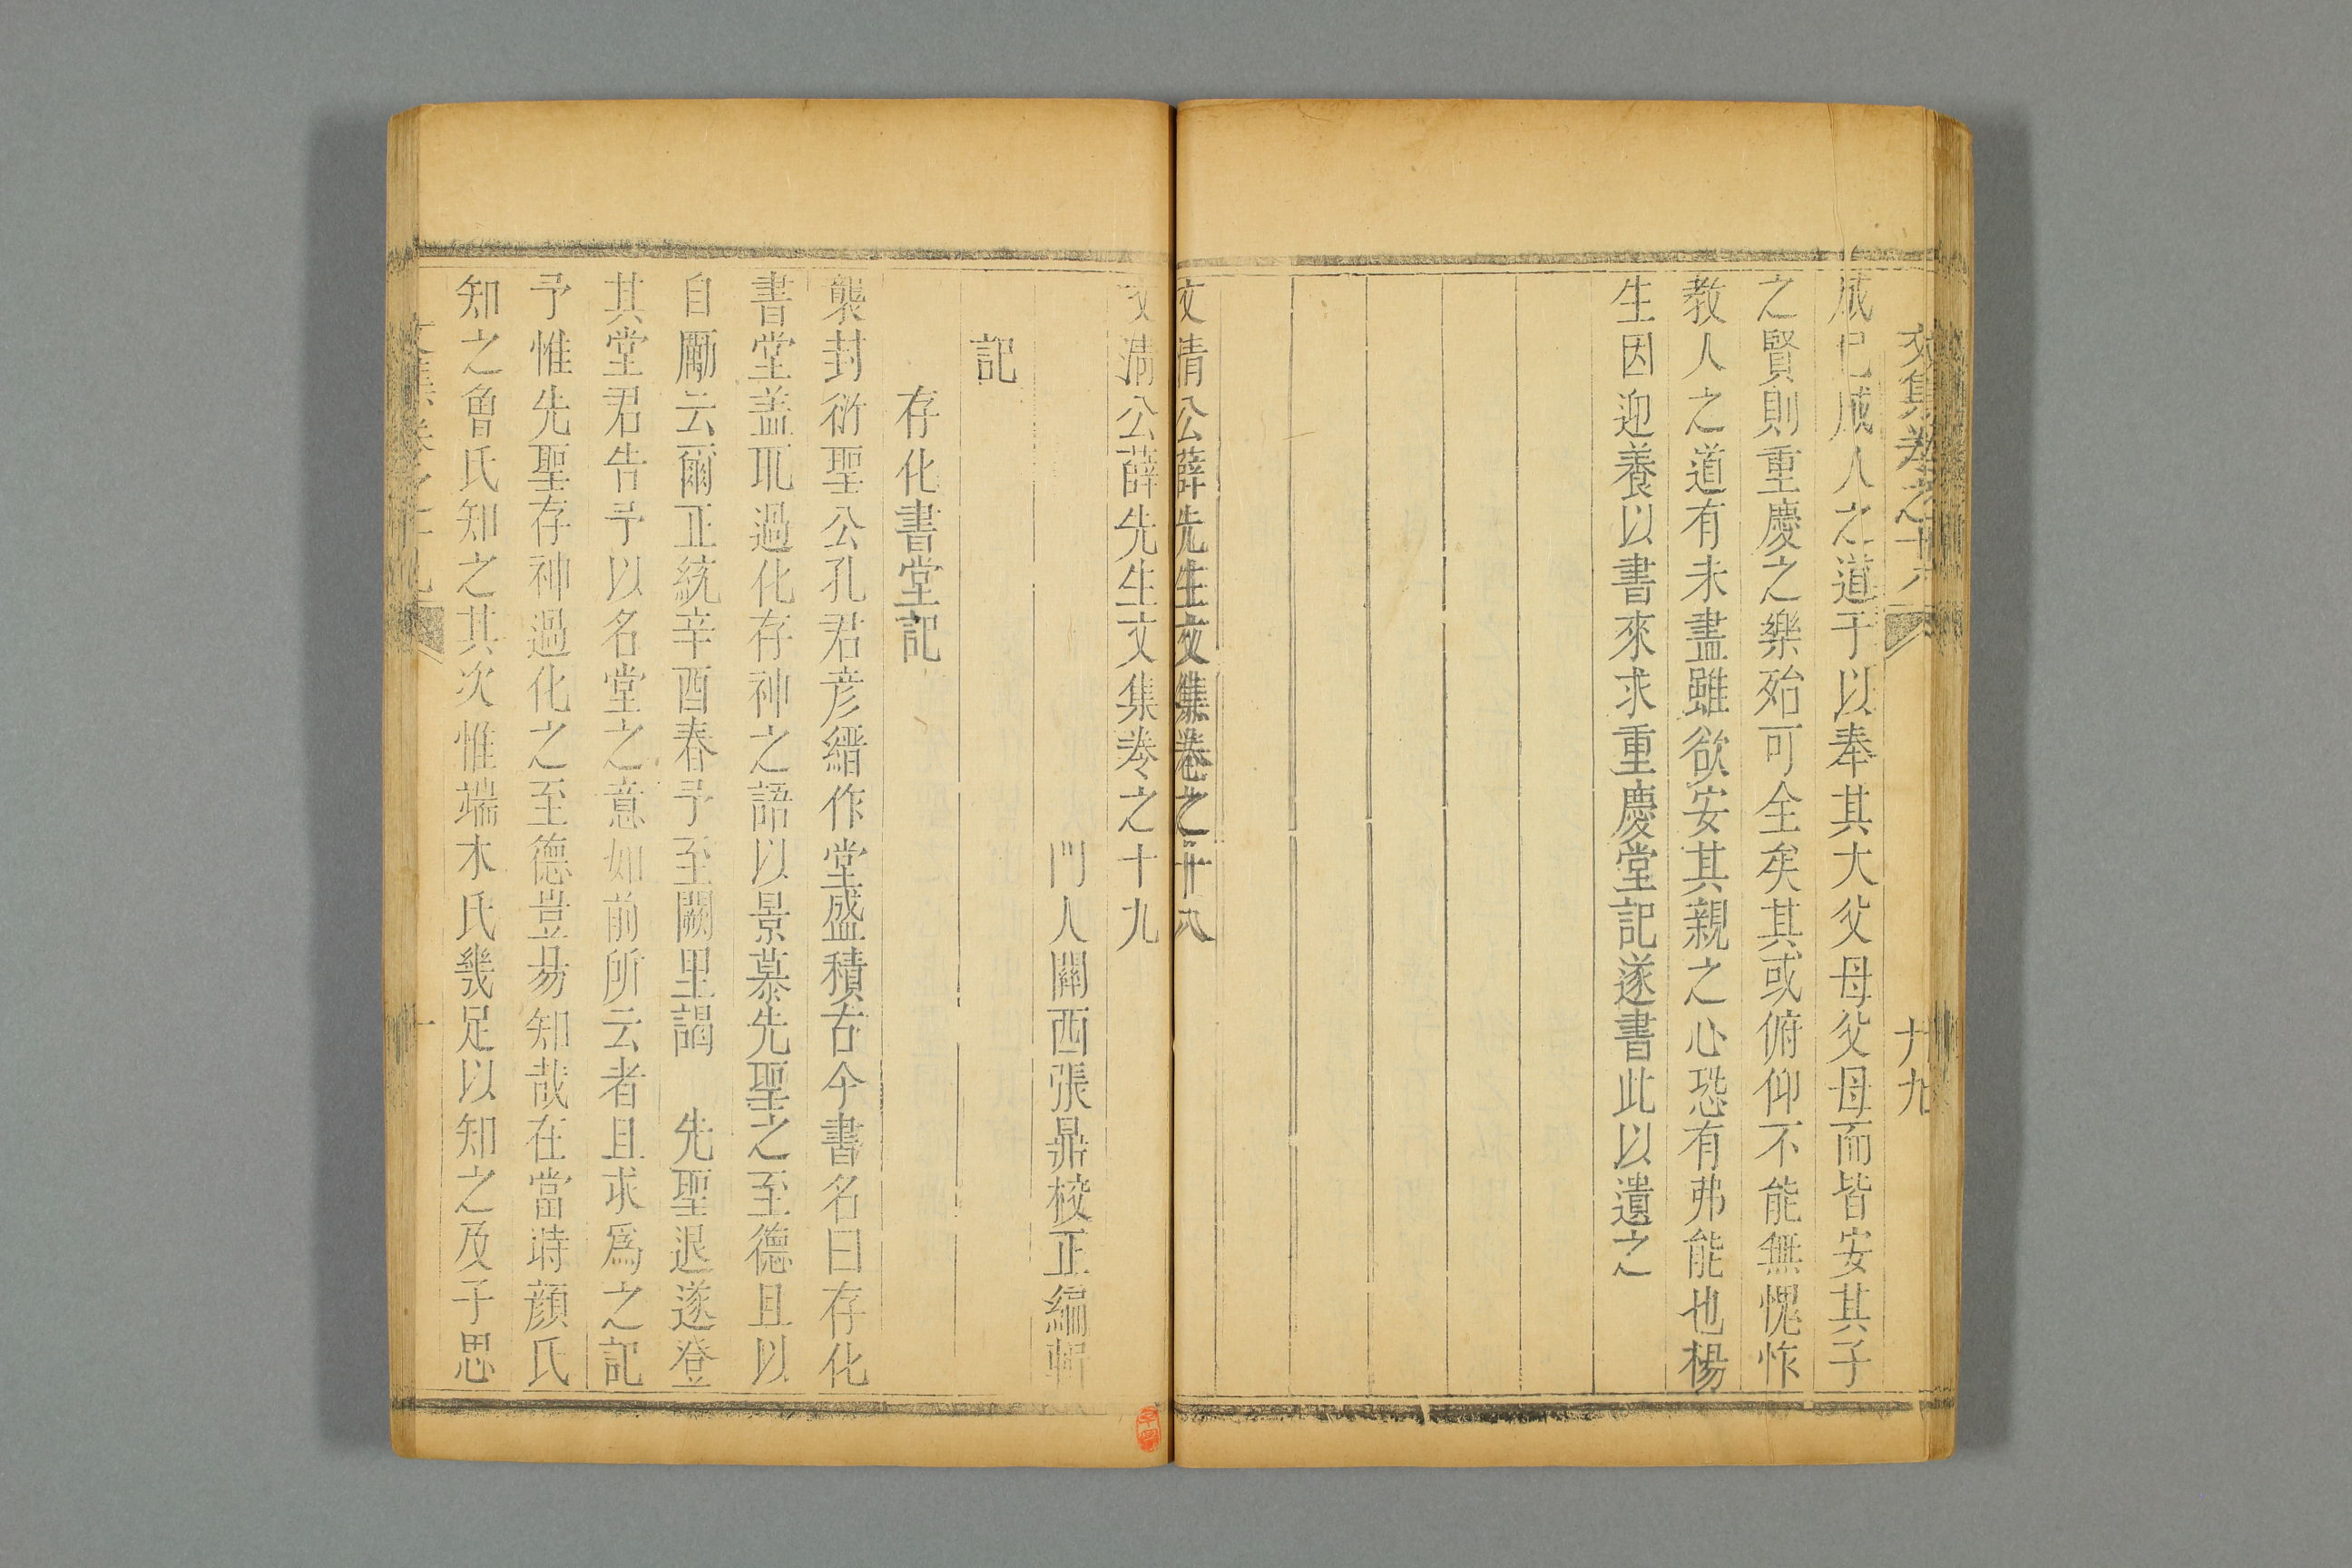 文集卷之十八
廿九
成已成人之道于以奉其大父母父母而皆安其子
之賢則重慶之樂殆可全矣其或俯仰不能無愧怍
教人之道有未盡雖欲安其親之心恐有弗能也楊
生因迎養以書來求重慶堂記遂書此以遺之
文清公薛先生文集卷之十八
文清公薛先生文集卷之十九
門人關西張鼎校正編輯
記
存化書堂記
襲封衍聖公孔君彦縉作堂盛積古今書名曰存化
書堂盖取過化存神之語以景慕先聖之至德且以
自勵云爾正統辛酉春予至闕里謁 先聖退遂登
其堂君告予以名堂之意如前所云者且求爲之記
予惟先聖存神過化之至德豈昜知哉在當時顔氏
知之曾氏知之其次惟端木氏幾足以知之及子思
文集卷之十九
一